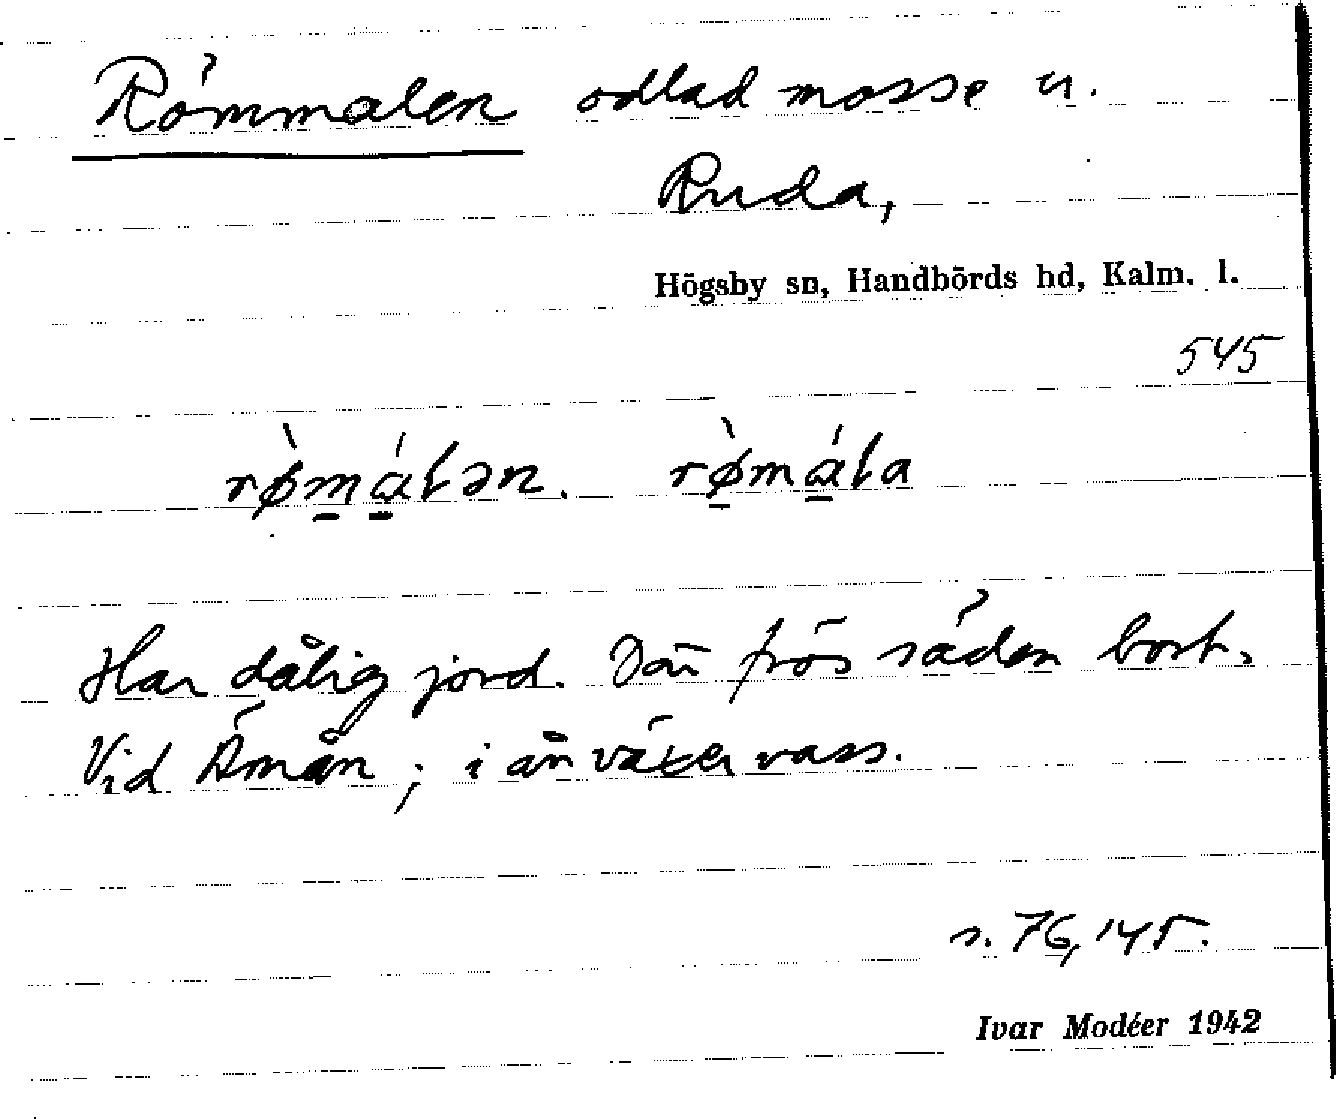 Römmalen odlad mosse u.
Ruda,
Högsby sn, Handbörds hd, Kalm. l.
545
rø̀málən. rø̀máła
Har dålig jord. Där frös säden bort.
Vid Ämån; i ån växer vass.
s. 76, 145.
Ivar Modéer 1942